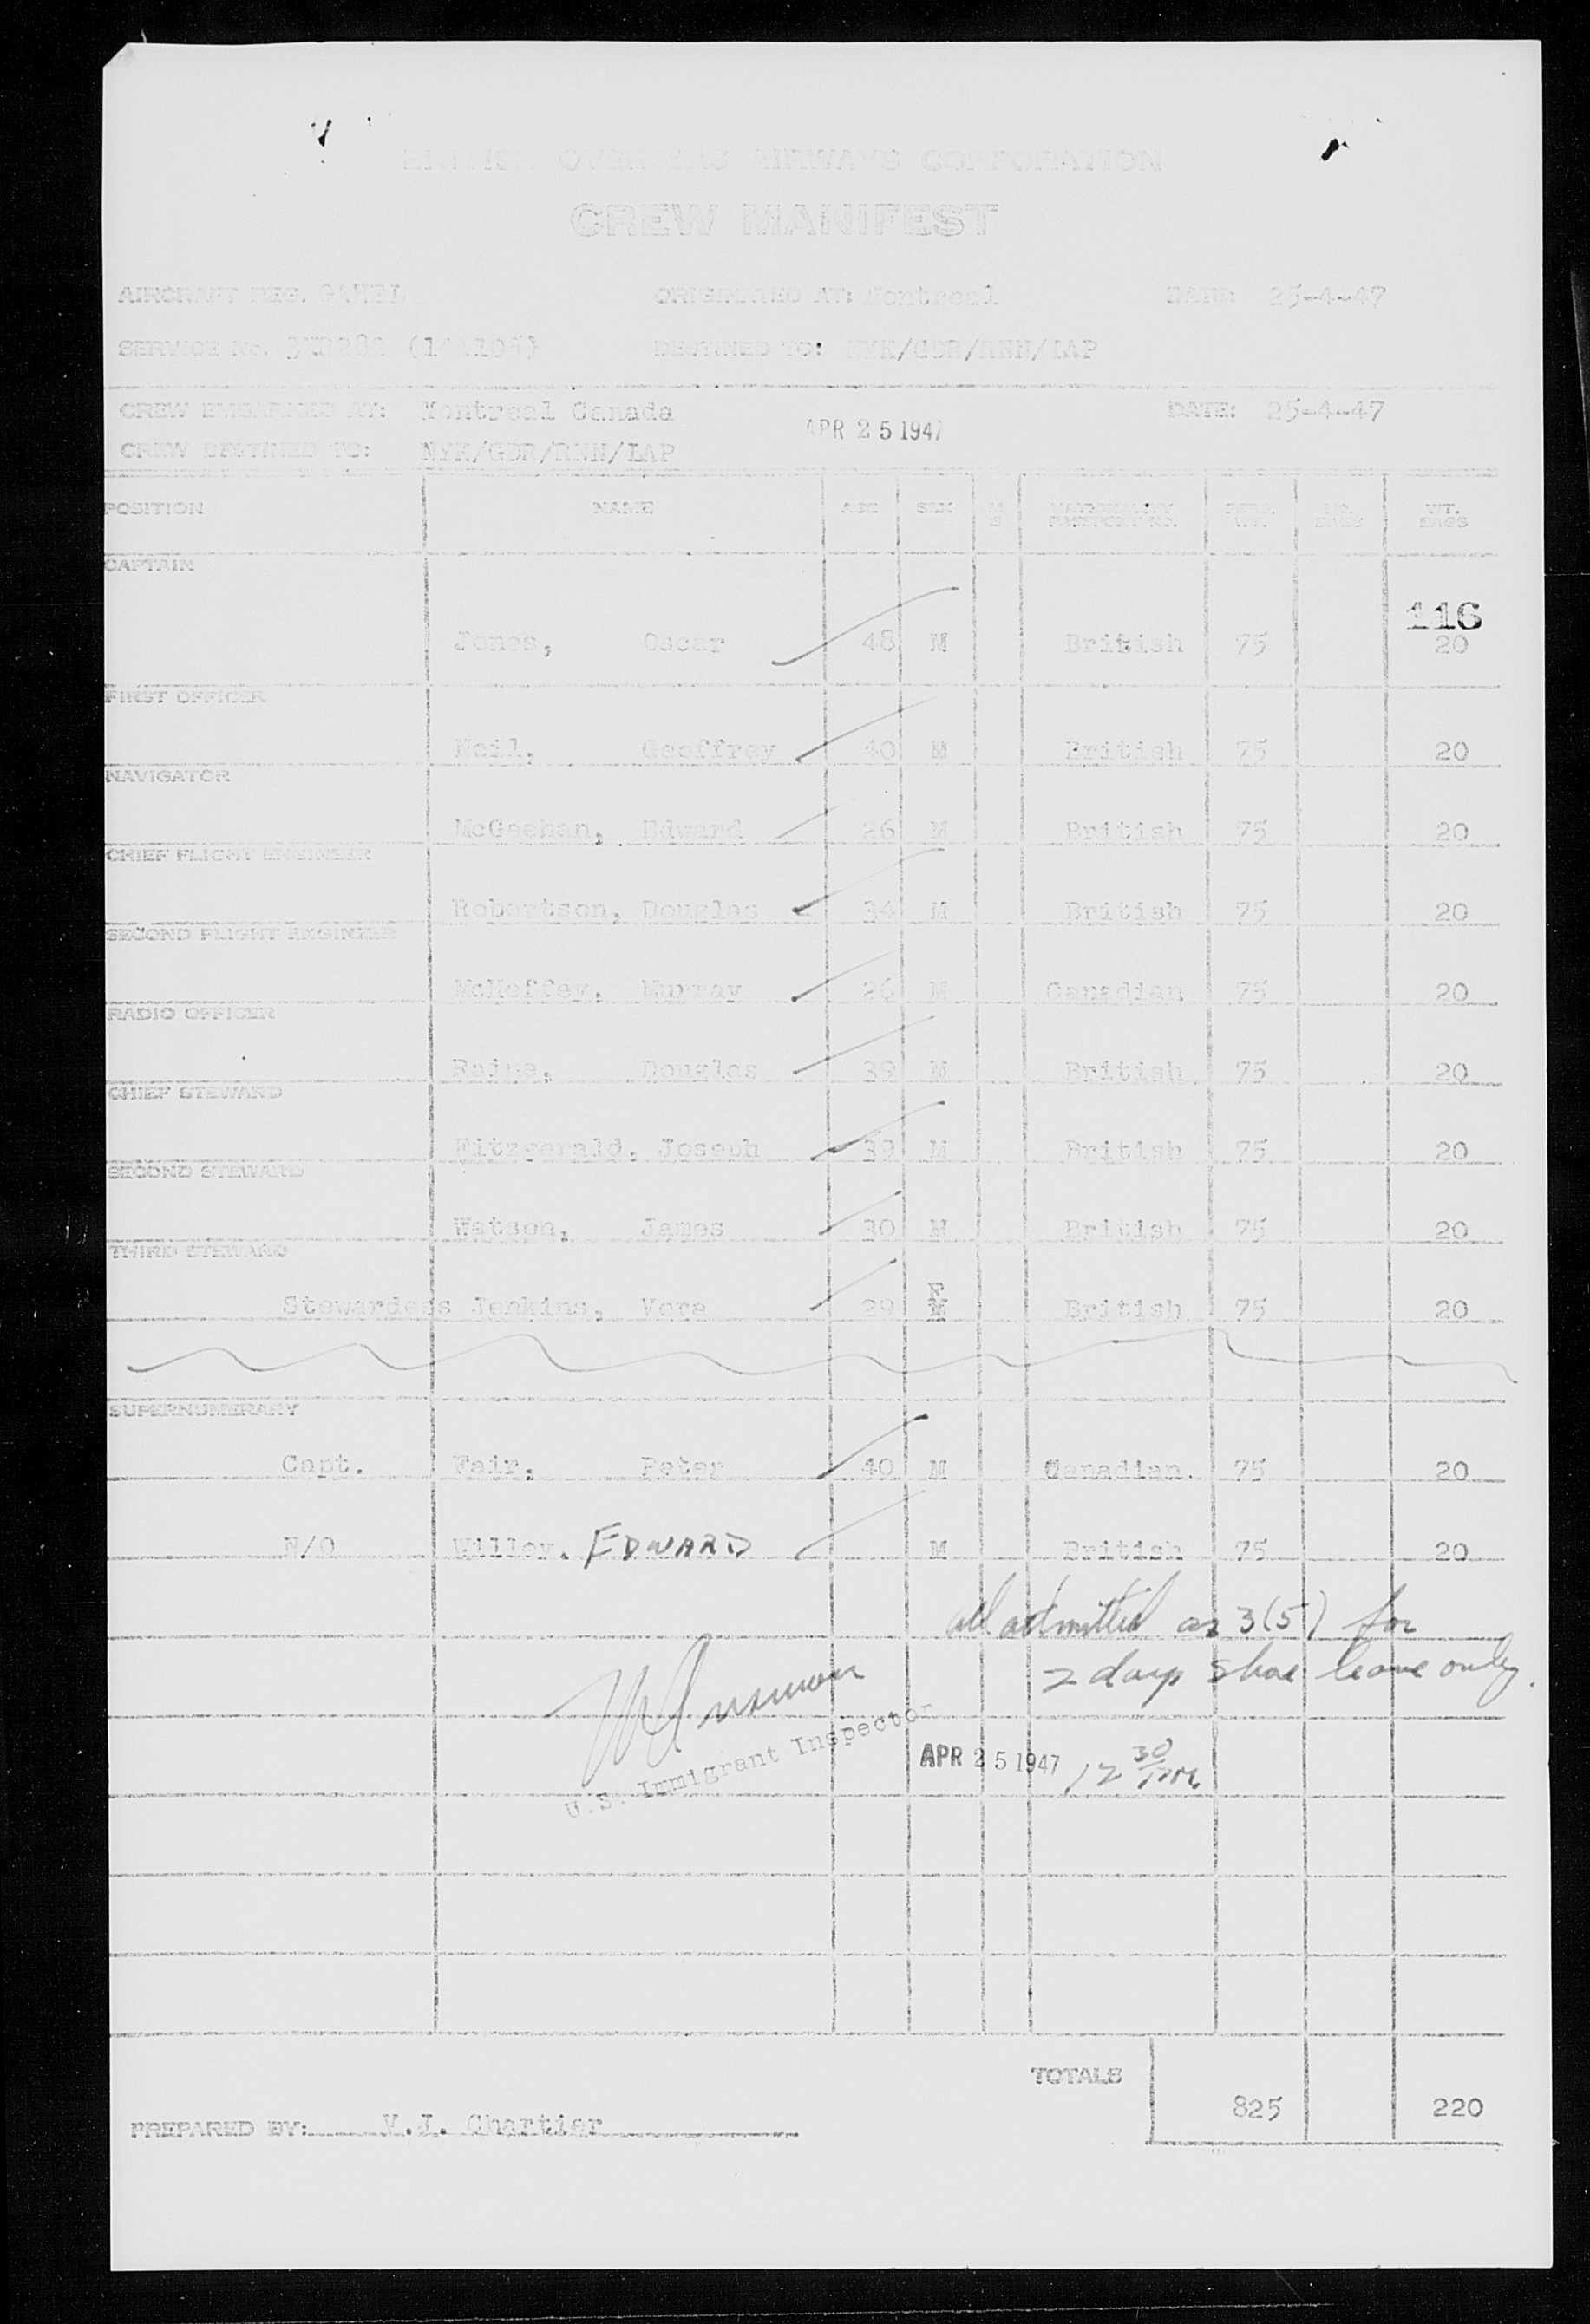 OVERSEAS AIRWAYS CORPORATION
CREW MANIFEST
AIRCRAFT REG. ORIGINATED AT: Montreal DATE: 25-4-47
SERVICE No. DESTINED TO: NYK/GDR/RNN/LAP
CREW EMBARKED AT: Montreal Canada DATE: 25-4-47
APR 25 1947
CREW DESTINED TO: NYK/GDR/RNN/LAP
POSITION NAME AGE SEX PASSPORT NO. WT. BAGS
CAPTAIN
116
Jones, Oscar 48 M British 75 20
FIRST OFFICER
Neil, Geoffrey 40 M British 75 20
NAVIGATOR
McGeehan, Edward 26 M British 75 20
CHIEF FLIGHT ENGINEER
Robertson, Douglas 34 M British 75 20
SECOND FLIGHT ENGINEER
McHeffey, Murray 26 M Canadian 75 20
RADIO OFFICER
Raine, Douglas 39 M British 75 20
CHIEF STEWARD
Fitzgerald, Joseph 39 M British 75 20
SECOND STEWARD
Watson, James 30 M British 75 20
THIRD STEWARD
Stewardess Jenkins, Vera 29 F M British 75 20
SUPERNUMERARY
Capt. Fair, Peter 40 M Canadian. 75 20
N/O Willey, EDWARD M British 75 20
all admitted as 3(5) for
2 days shore leave only.
U.S. Immigrant Inspector
APR 25 1947 12 30 PM
TOTALS 825 220
PREPARED BY: V.J. Chartier